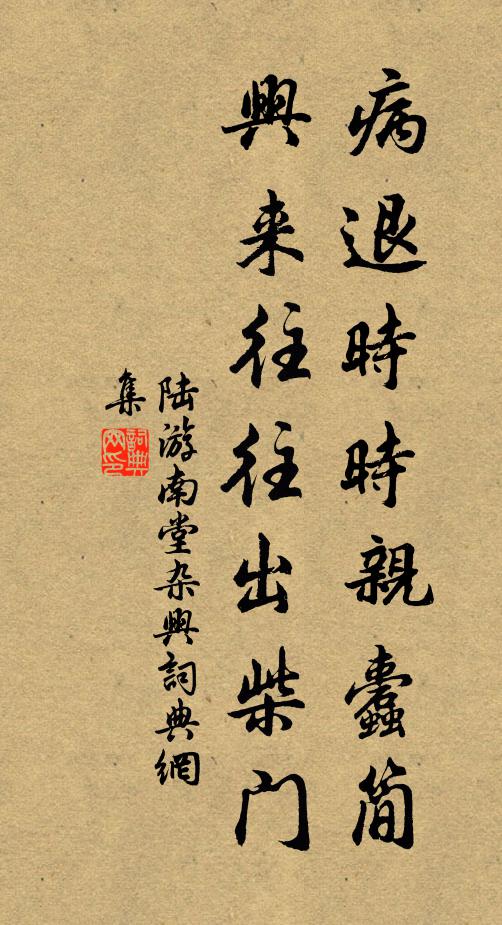 病退時時親蠹簡
興来往往出柴門
陆游南堂杂興詞典網
集
詞典網印